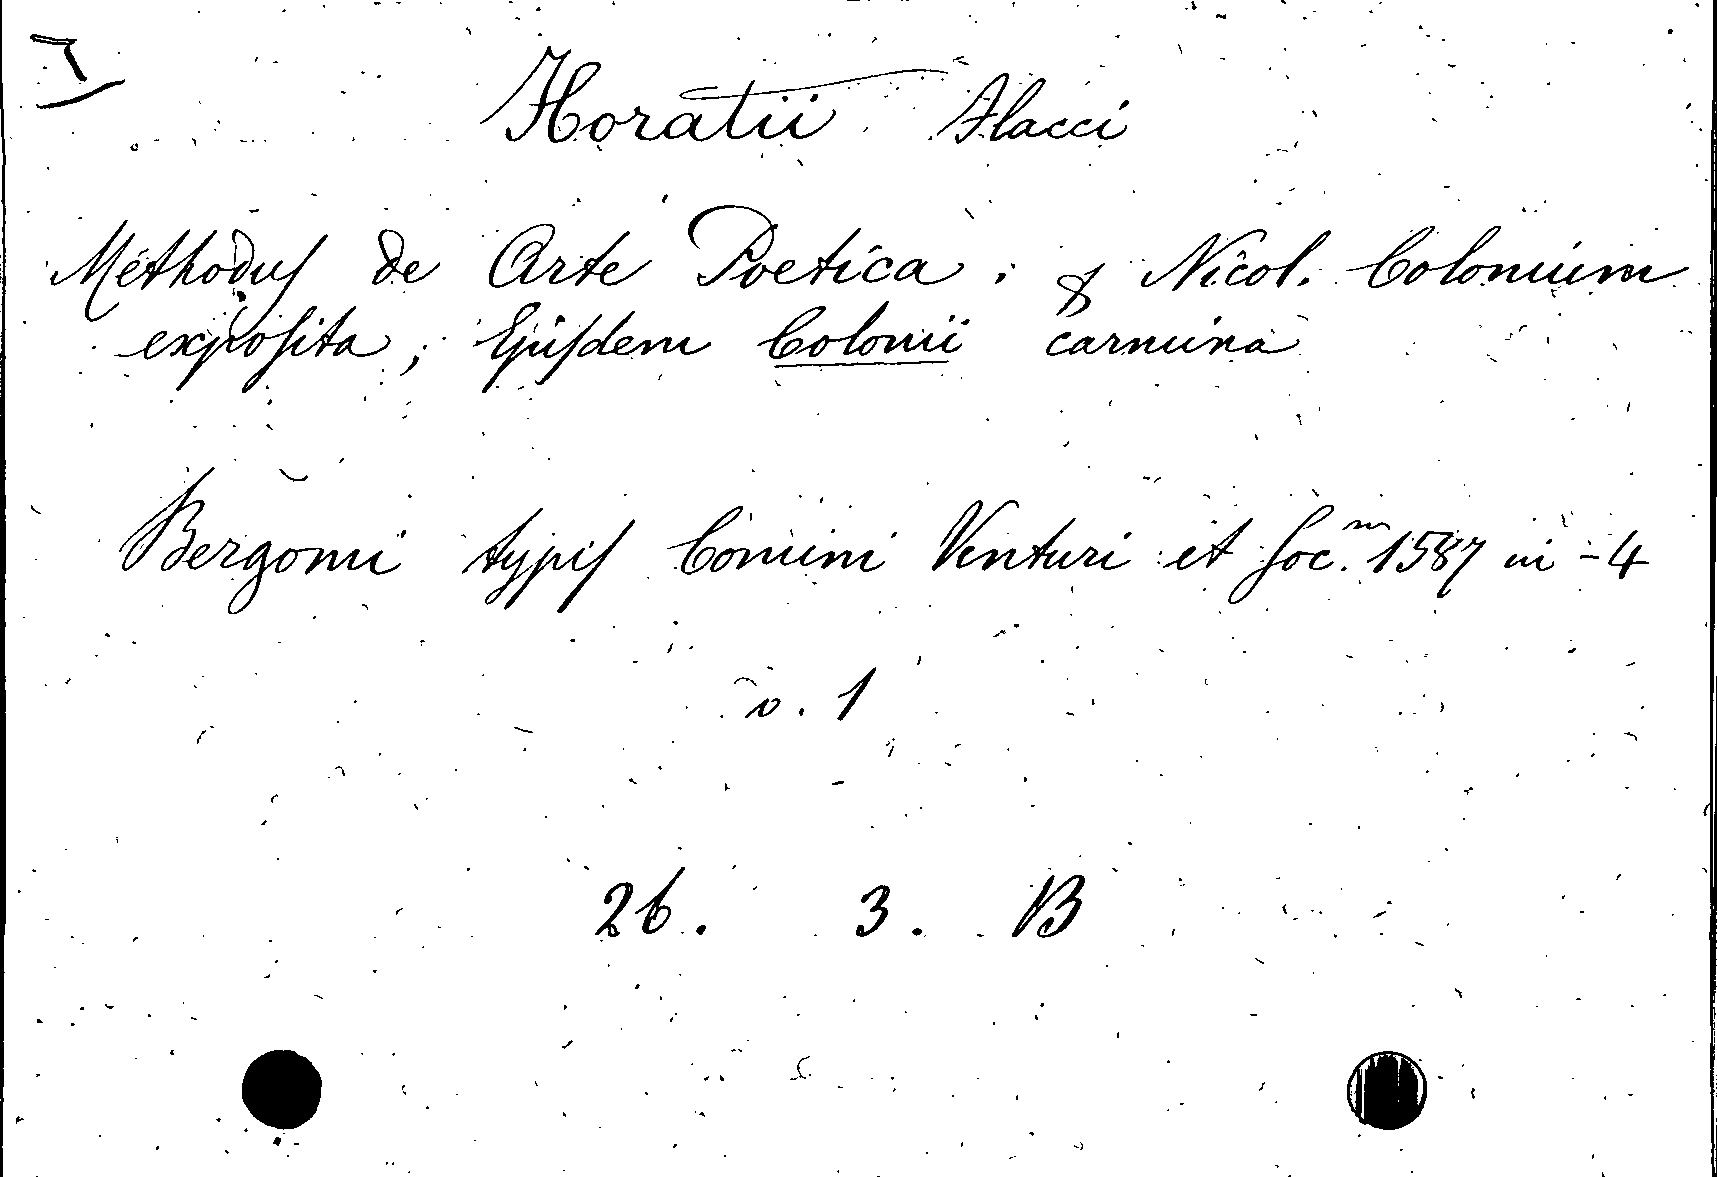 Horatii Flacci
Methodus de Arte Poetica : & Nicol. Colonium
exposita ; Ejusdem Colonii carmina
Bergomi typis Comini Venturi et Soc.m 1587 in -4
v. 1
26. 3. B